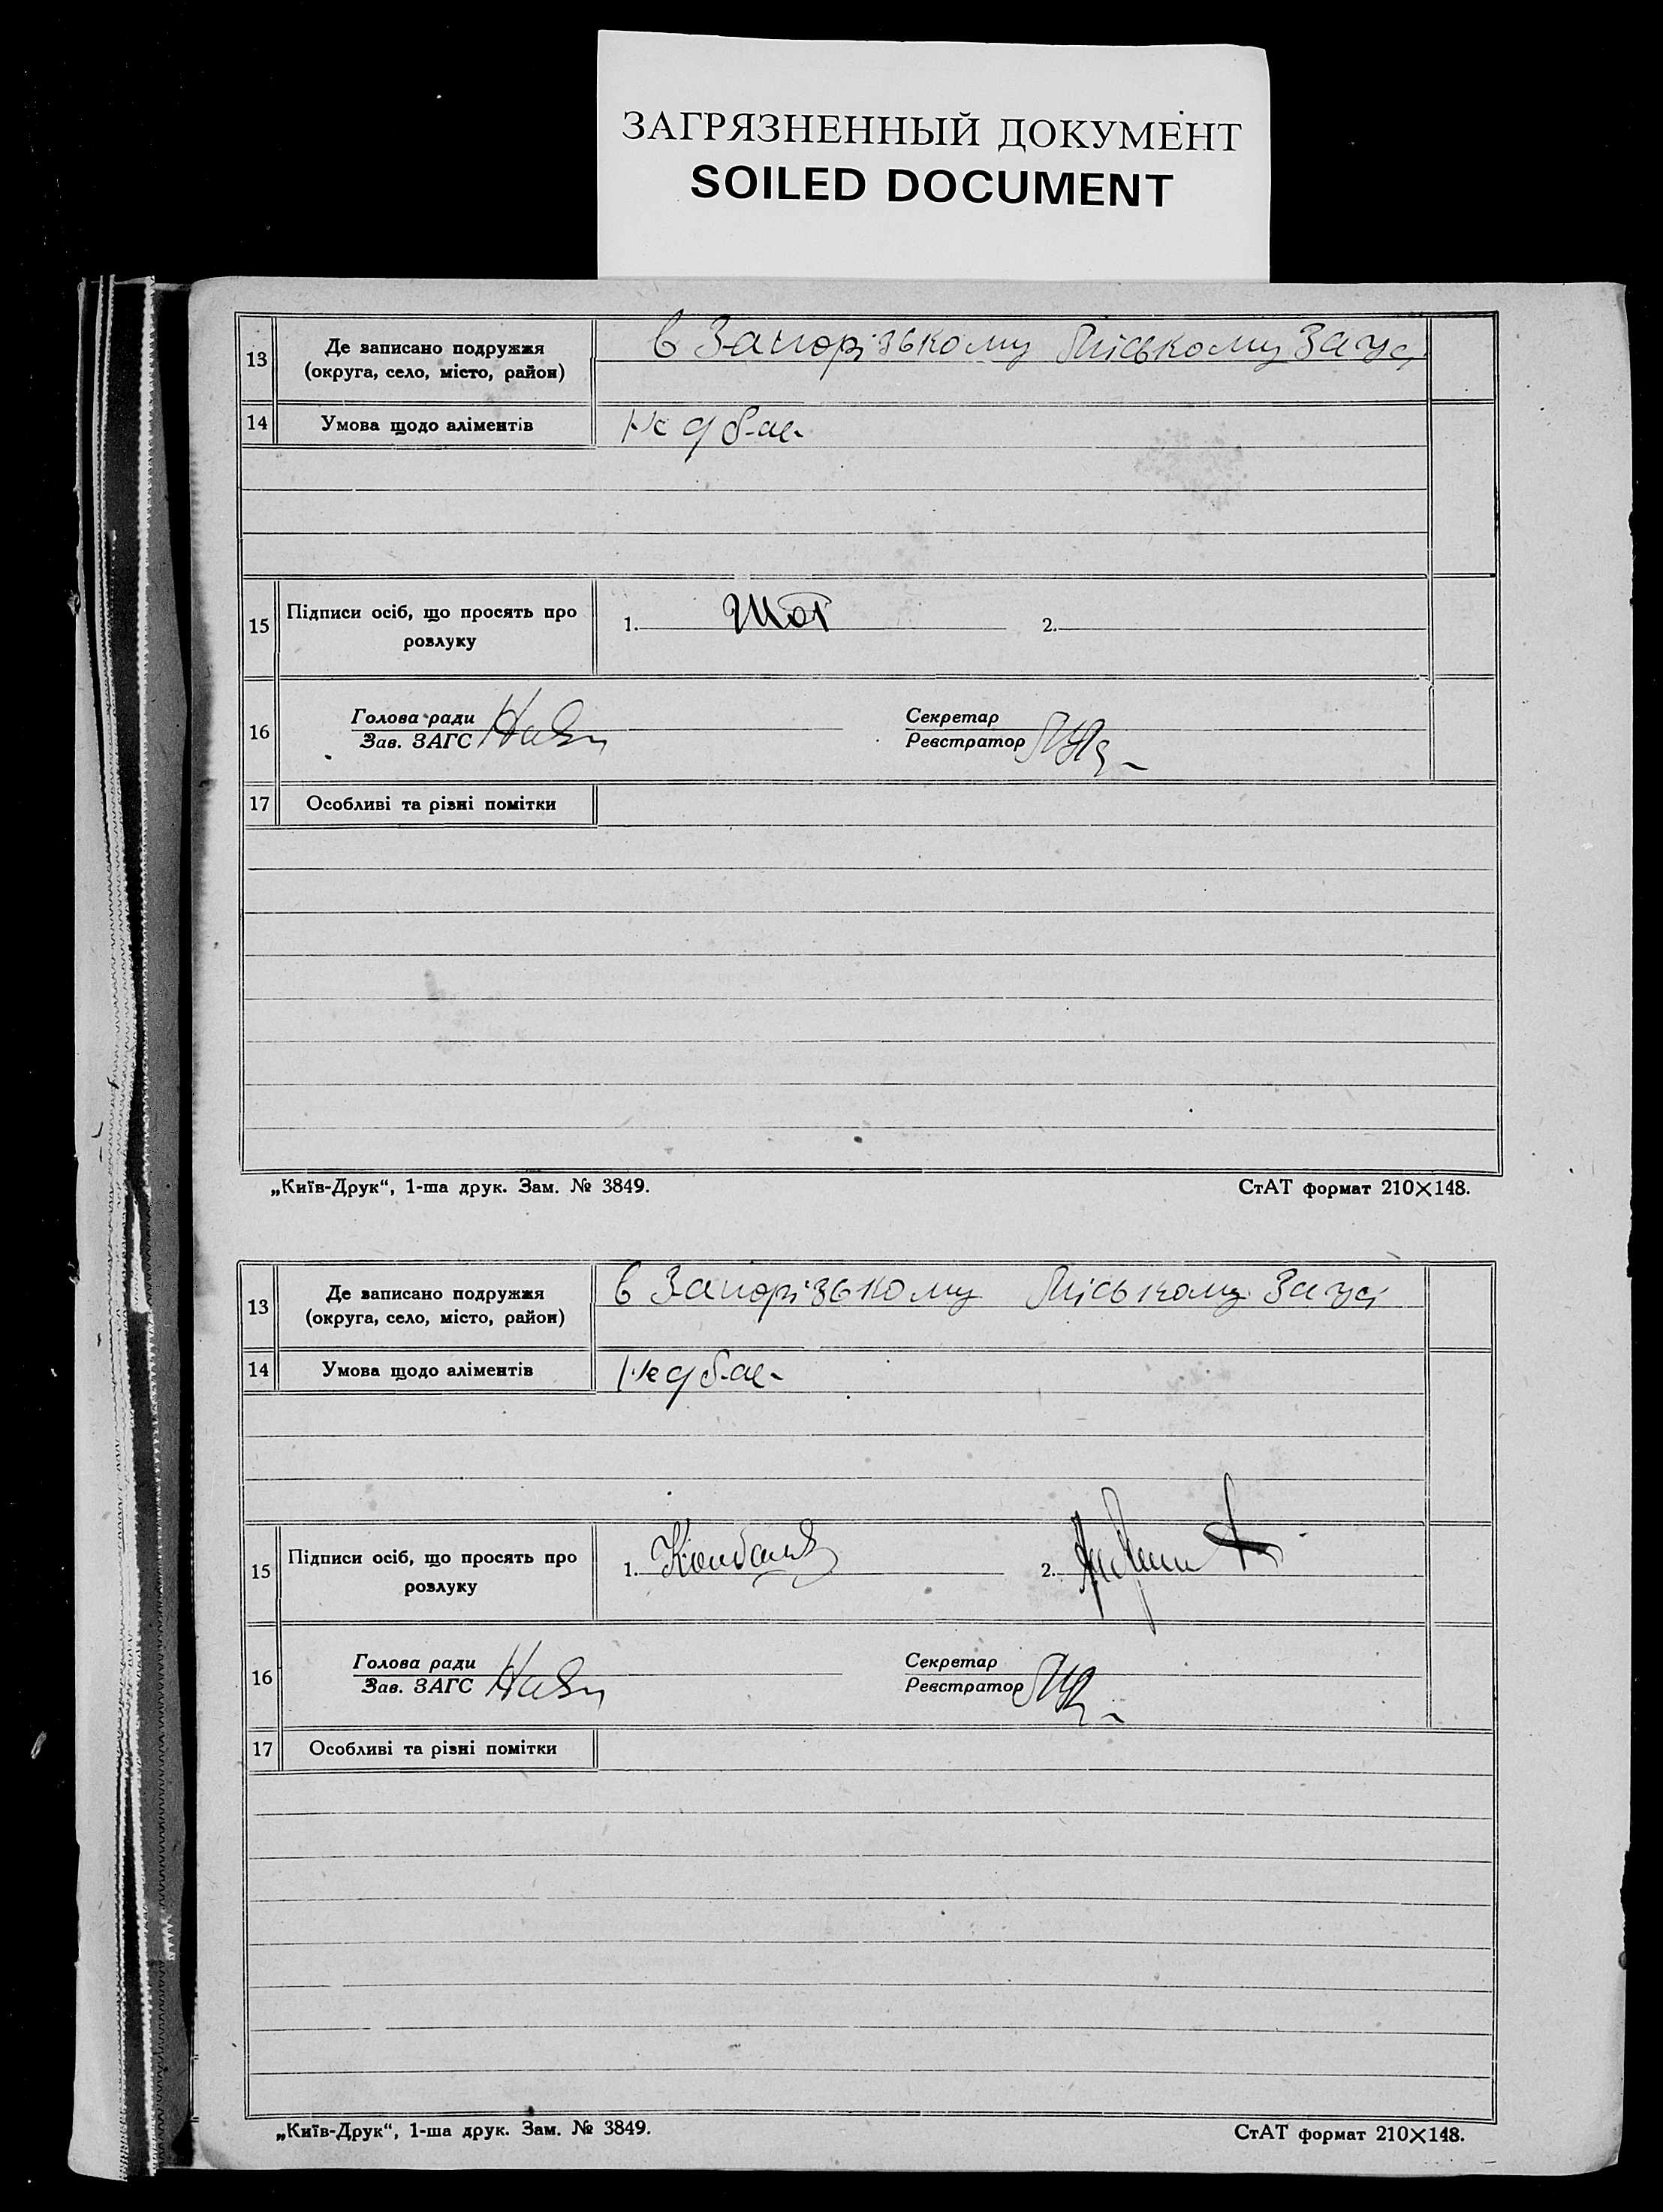 ЗАГРЯЗНЕННЫЙ ДОКУМЕНТ
SOILED DOCUMENT
13
Де записано подружжя
(округа, село, місто, район)
в Запорізькому Міському Загсі
14
Умова щодо аліментів
15
Підписи осіб, що просять про
розлуку
1.
2.
16
Голова ради
Зав. ЗАГС
Секретар
Реєстратор
17
Особливі та різні помітки
„Київ-Друк“, 1-ша друк. Зам. № 3849.
СтАТ формат 210×148.
13
Де записано подружжя
(округа, село, місто, район)
в Запорізькому Міському Загсі
14
Умова щодо аліментів
15
Підписи осіб, що просять про
розлуку
1.
2.
16
Голова ради
Зав. ЗАГС
Секретар
Реєстратор
17
Особливі та різні помітки
„Київ-Друк“, 1-ша друк. Зам. № 3849.
СтАТ формат 210×148.